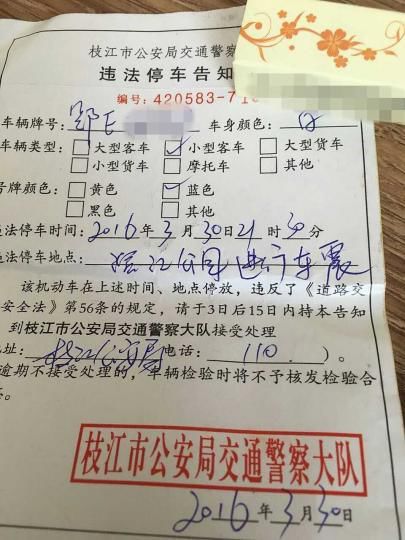 枝江市公安局交通警察
违法停车告知
编号:420583-71
车辆牌号:鄂E 车身颜色:白
车辆类型:□大型客车 ☑小型客车 □大型货车
□小型货车 □摩托车 □其他
号牌颜色:□黄色 ☑蓝色
□黑色 □其他
违法停车时间:2016年3月30日21时30分
违法停车地点:滨江公园进行车震
该机动车在上述时间、地点停放,违反了《道路交
安全法》第56条的规定,请于3日后15日内持本告知
到枝江市公安局交通警察大队接受处理
地址:枝江公安局 电话:110 )。
逾期不接受处理的,车辆检验时将不予核发检验合
枝江市公安局交通警察大队
2016年3月30